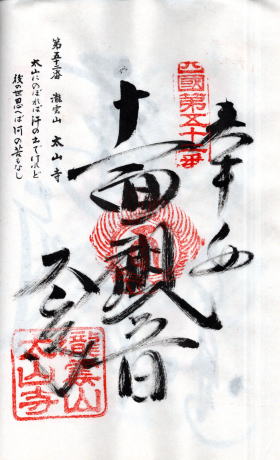 四國第五十二番
奉納
十一面観音
太山寺
瀧雲山
太山寺
第五十二番 瀧雲山 太山寺
太山にのぼれば汗の出でけれど
後の世思へば何の苦もなし